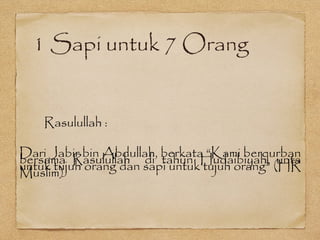 1 Sapi untuk 7 Orang
Rasulullah :
Dari Jabir bin Abdullah, berkata “Kami berqurban
bersama Rasulullah di tahun Hudaibiyah, unta
untuk tujuh orang dan sapi untuk tujuh orang” (HR
Muslim))